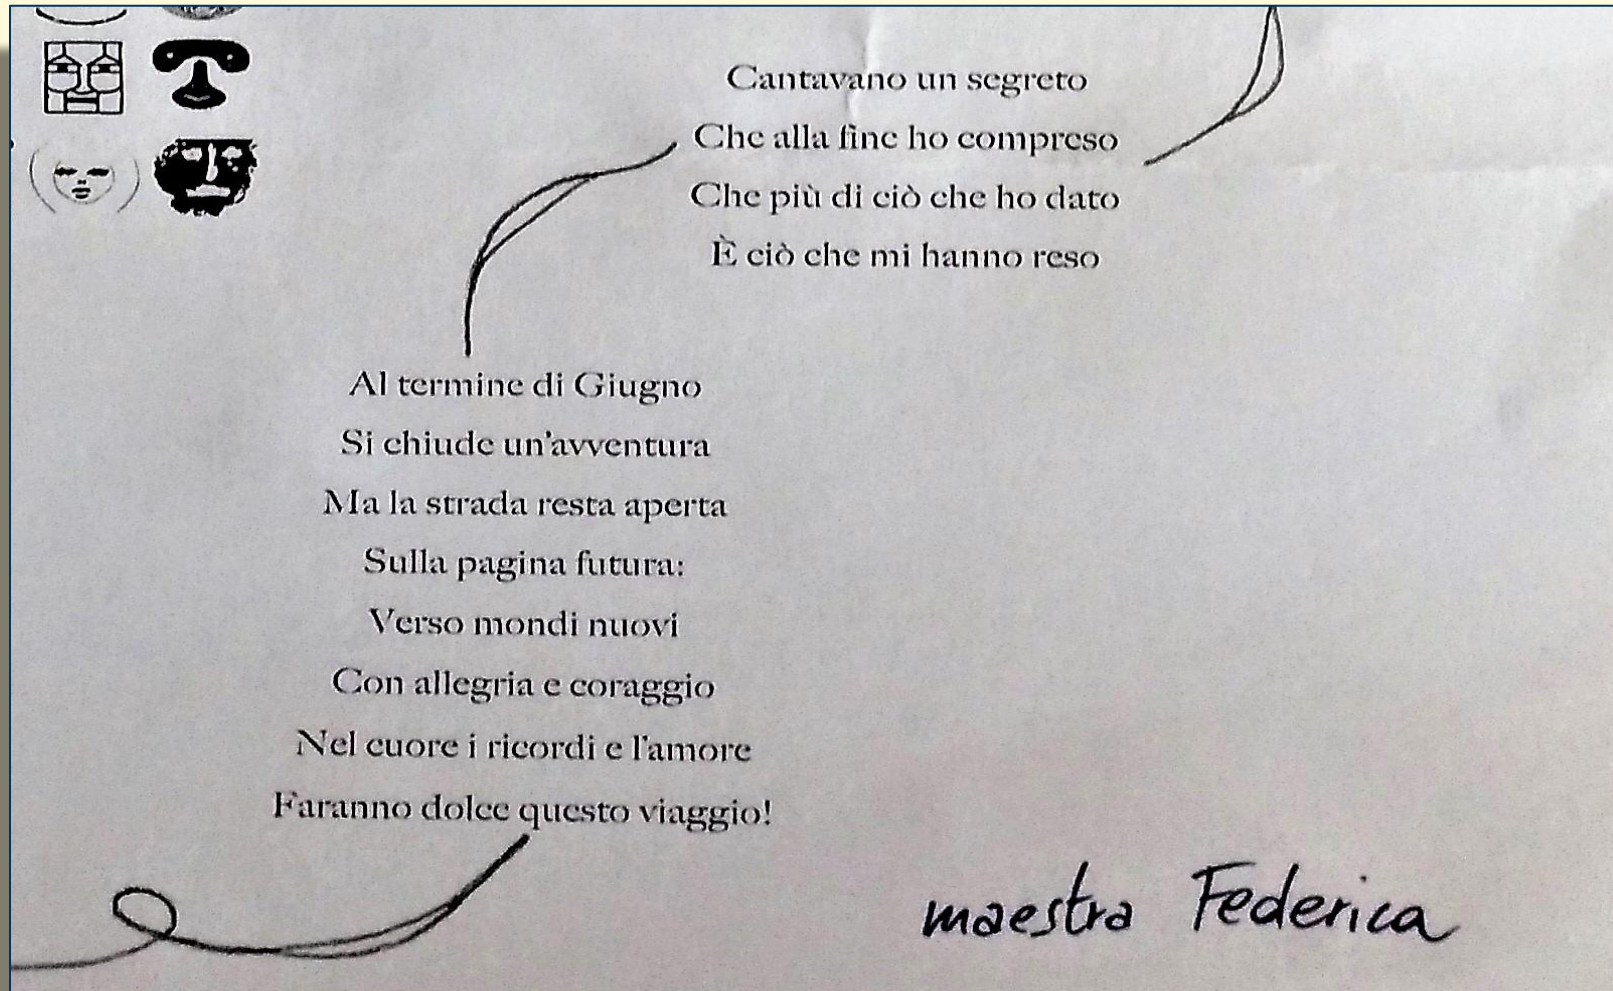 Cantavano un segreto
Che alla fine ho compreso
Che più di ciò che ho dato
È ciò che mi hanno reso
Al termine di Giugno
Si chiude un'avventura
Ma la strada resta aperta
Sulla pagina futura:
Verso mondi nuovi
Con allegria e coraggio
Nel cuore i ricordi e l'amore
Faranno dolce questo viaggio!
maestra Federica